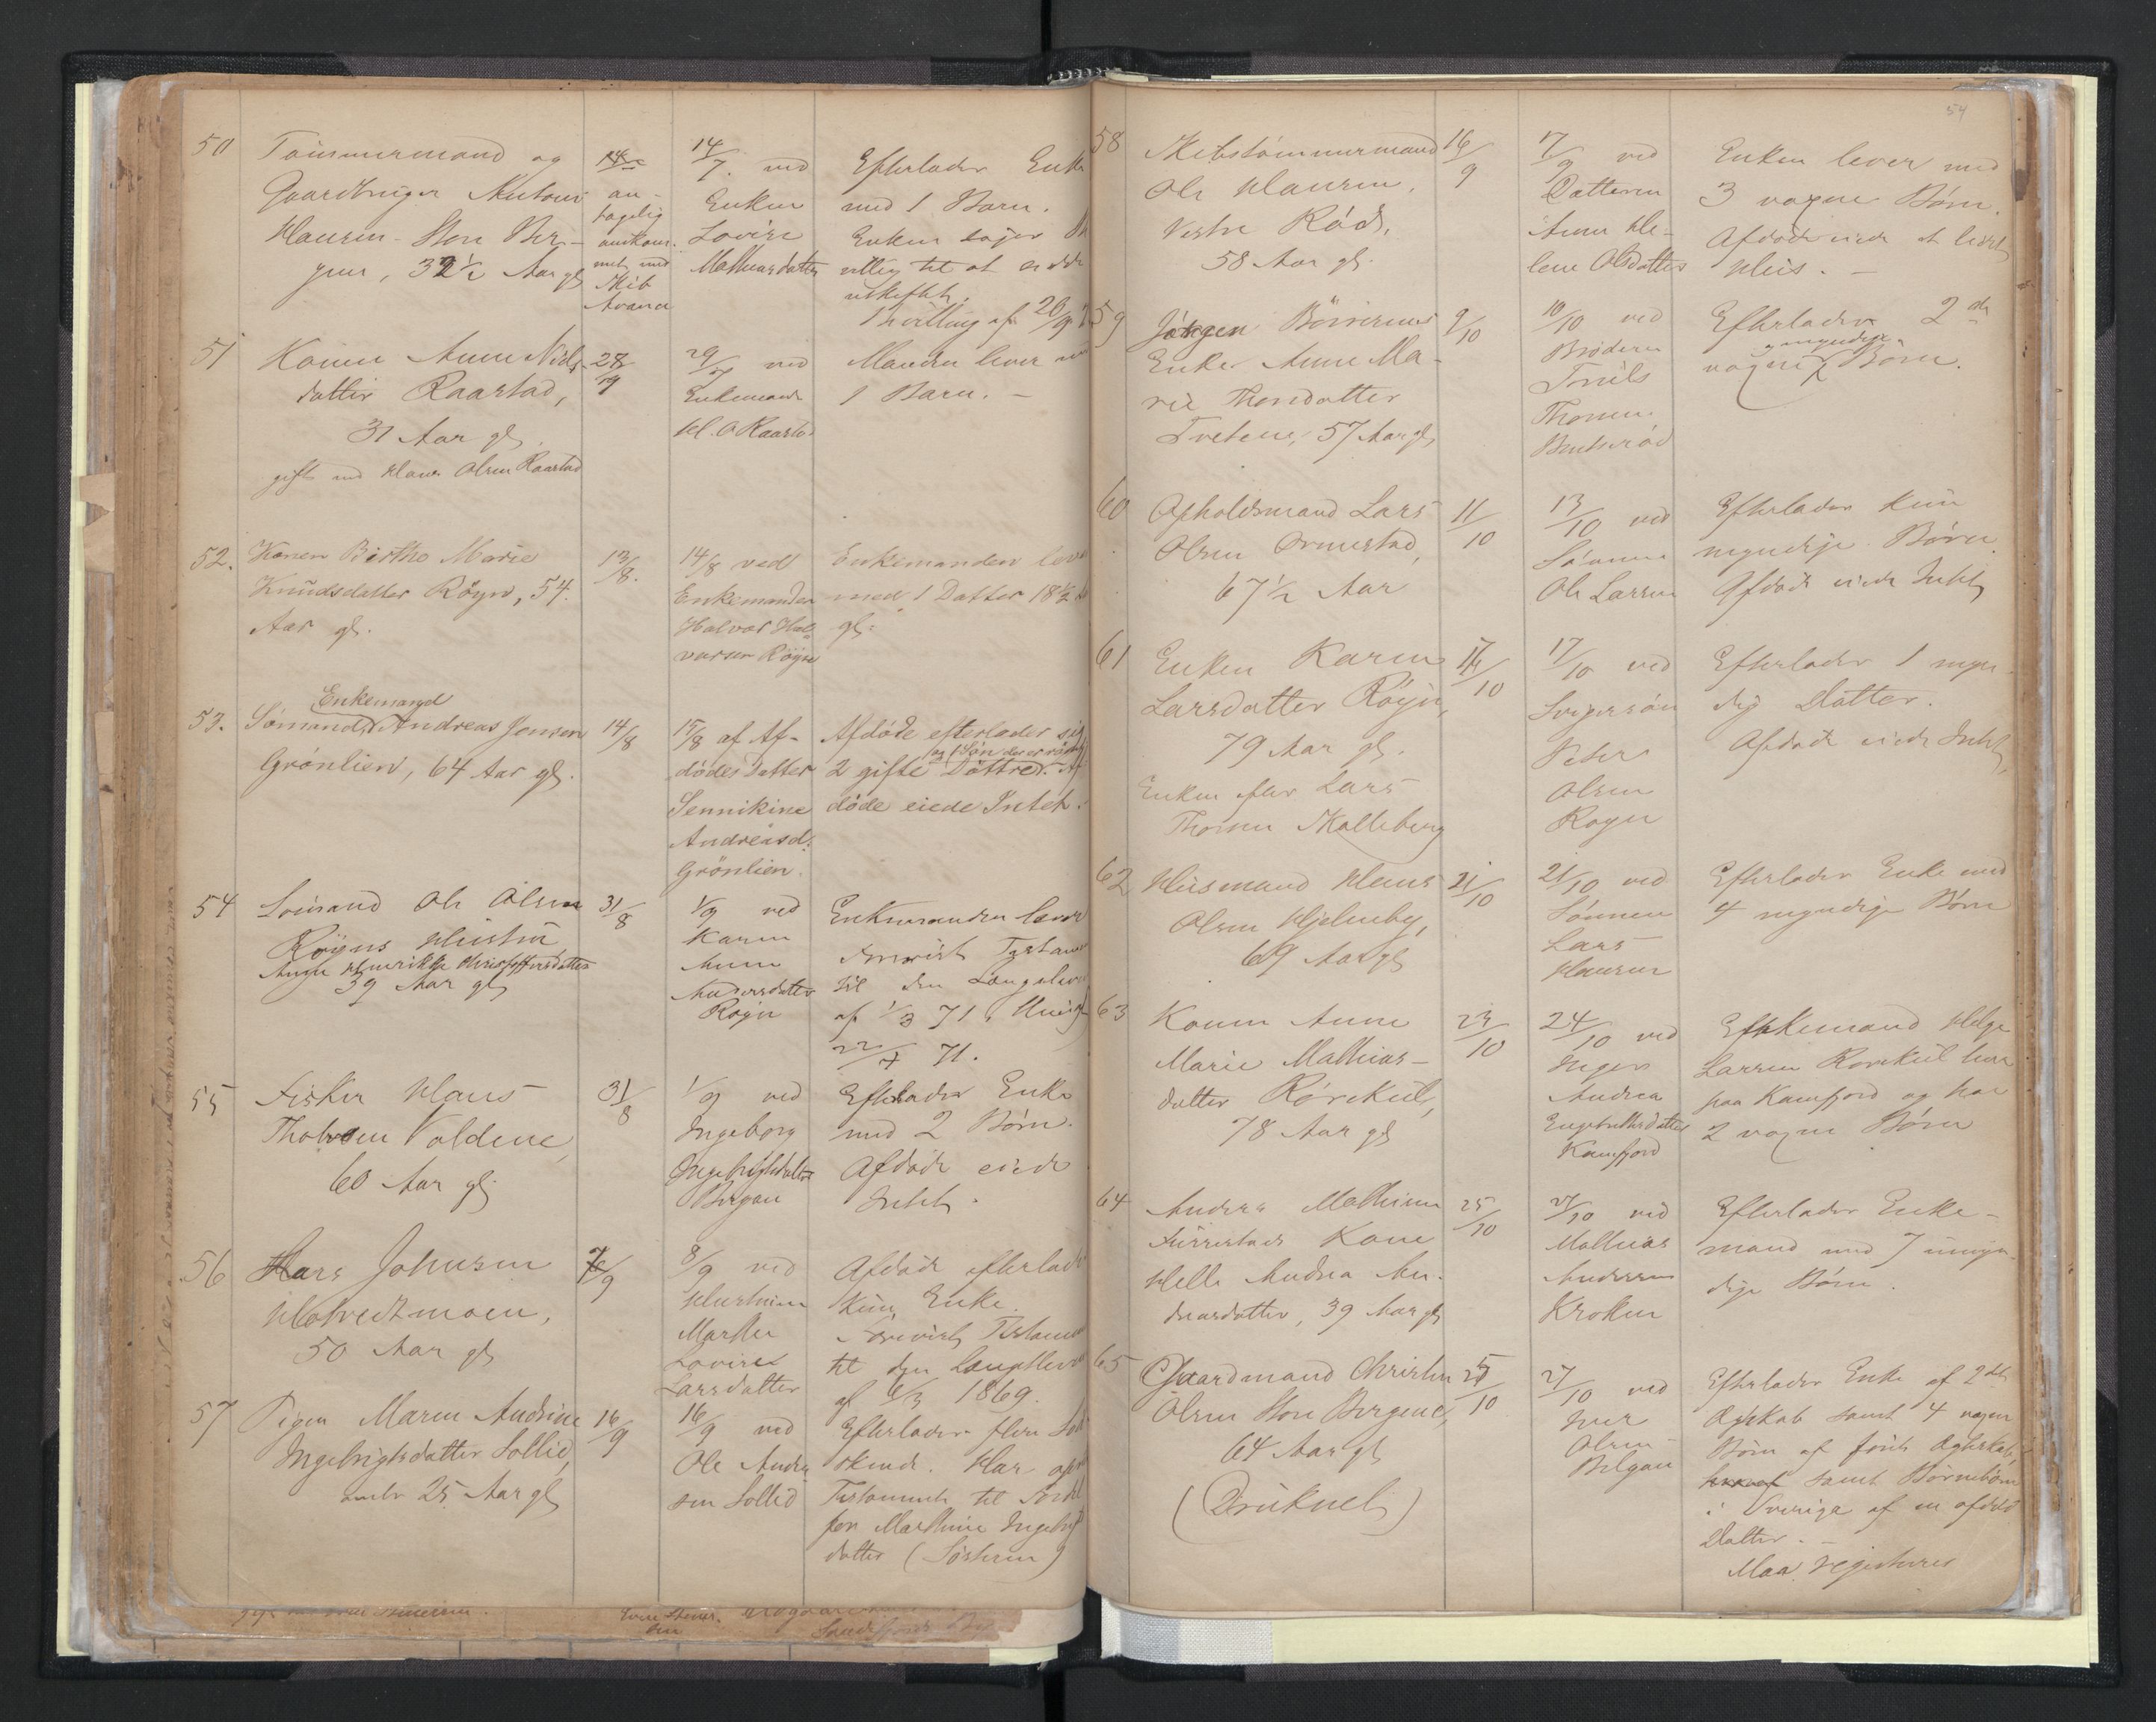 50 Tømmermand og
Gaardbruger Antoni
Hansen Store Ber-
gan, 32½ Aar gl
an-
tagelig
omkom-
met med
Skib
14/7. ved
Enken
Lovise
Mathiasdatter
Efterlader Enke
med 1 Barn.
Enken søger
uskiftet.
Bevilling af 20/9
51 Konen Anne Niels-
datter Raastad,
31 Aar gl.
gift med Hans Olsen Raastad
28/7
29/7 ved
Enkemand
H. O. Raastad
Manden lever med
1 Barn. -
52. Konen Birthe Marie
Knudsdatter Röyn, 54.
Aar gl.
13/8.
14/8 ved
Enkemanden
Halvor Hal-
vorsen Röyn
Enkemanden lever
med 1 Datter 18½
gl.
53. Sömand Enkemand Andreas Jensen
Grönlien, 64 Aar gl.
14/8
15/8 af Af-
dödes Datter
Sennikine
Andreasd.
Grönlien.
Afdöde efterlader sig
2 gifte og 1 Sön Döttre. Af-
döde eiede Intet.
54 Sømand Ole Olsen
Røyns Hustru
Anne Henrikke Christoffersdatter
39 Aar gl
31/8
1/9 ved
Karen
Anne
Andersdatter
Røyn
Enkemanden lever
Testament
til den Længstlevende
af 1/3 71,
22/7 71.
55 Fisker Hans
Tholvsen Voldene,
60 Aar gl.
31/8
1/9 ved
Ingeborg
Ingebrigtsdatter
Bergan
Efterlader Enke
med 2 Børn.
Afdøde eiede
Intet.
56 Hans Johnsen
Hotvedtmoen,
50 Aar gl
7/9
8/9 ved
Hustruen
Marthe
Lovise
Larsdatter
Afdøde efterlader
kun Enke.
Testament
til den Længstlevende
af 6/3 1869.
57 Pigen Maren Andrine
Ingebrigtsdatter Sollid,
25 Aar gl
16/9
16/9 ved
Ole Andr
sen Sollid
Efterlader flere Sød-
skende. Har opr
Testamente til Fordel
for Mathine Ingebrigts
datter (Søsteren)
54
58 Skibstømmermand
Ole Hansen,
Vestre Rød,
58 Aar gl.
16/9
17/9 ved
Datteren
Anne He-
lene Olsdatter
Enken lever med
3 voxne Børn.
Afdøde eiede et lidet
Huus. -
59 Jørgen
Enke Anne Ma-
rie Thorsdatter
Tvetene, 57 Aar gl
9/10
10/10 ved
Broderen
Truls
Thorsen
Efterlader 2de
voxne og myndige Børn.
60 Opholdsmand Lars
Olsen Ormestad,
67½ Aar
11/10
13/10 ved
Sønnen
Ole Larsen
Efterlader kun
myndige Børn.
Afdøde eiede Intet
61 Enken Karen
Larsdatter Røyn,
79 Aar gl.
Enken efter Lars
Thorsen Skalleberg
17/10
17/10 ved
Svigersøn
Peter
Olsen
Røyn
Efterlader 1 myn-
dig Datter.
Afdøde eiede Intet,
62 Huusmand Hans
Olsen Hjelmby,
69 Aar gl
21/10
21/10 ved
Sønnen
Lars
Hansen
Efterlader Enke med
4 myndige Børn
63 Konen Anne
Marie Mathias-
datter Rørekul,
78 Aar gl
23/10
24/10 ved
Inger
Andrea
Engebrethsdatter
Kamfjord
Enkemand Helge
Larsen Rørekul bor
paa Kamfjord og har
2 voxne Børn
64 Anders Mathisen
Furustads Kone
Helle Andrea An-
dreasdatter, 39 Aar gl
25/10
27/10 ved
Mathias
Andersen
Kroken
Efterlader Enke-
mand med 7 umyn-
dige Børn.
65 Gaardmand Christen
Olsen Store Bergene,
64 Aar gl
(Druknet)
25/10
27/10 ved
Iver
Olsen
Bergan
Efterlader Enke af 2det
Ægteskab samt 4 voxne
Børn af første Ægteskab,
samt Børnebørn
i Sverige af en afdød
Datter. -
Maa registreres